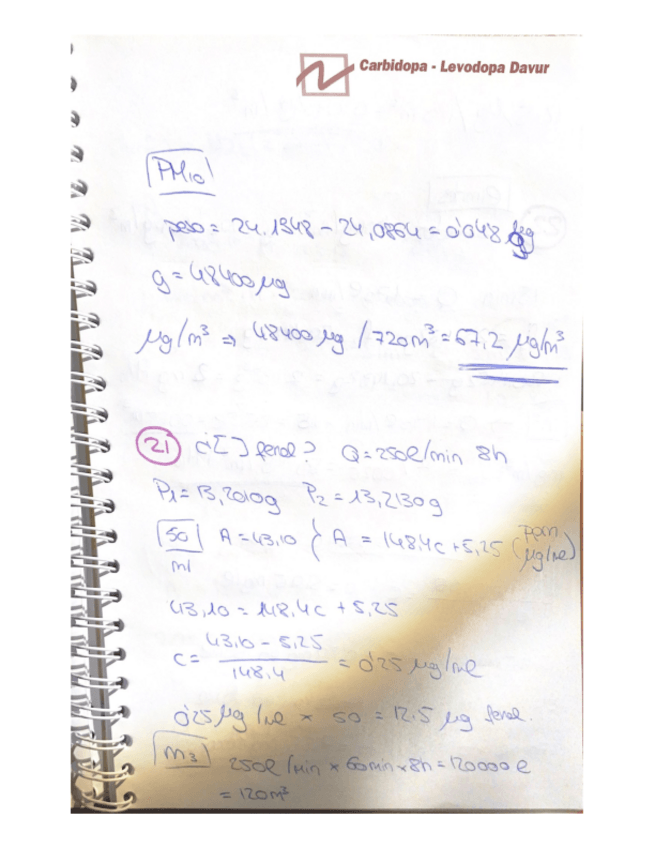 Carbidopa - Levodopa Davur
PM10
peso = 24.1348 - 24,0864 = 0'048 g
g = 48400 µg
µg/m³ ⇒ 48400 µg / 720 m³ = 67,2 µg/m³
21 ¿[ ] fenol? Q = 250l/min 8h
P1 = 13,2010g P2 = 13,2130g
50 ml A = 43,10 } A = 148,4c + 5,25 (ppm µg/ml)
43,10 = 148,4c + 5,25
c = (43,10 - 5,25) / 148,4 = 0'25 µg/ml
0'25 µg/ml × 50 = 12.5 µg fenol.
m3 250l/min × 60min × 8h = 120000 l
= 120m³